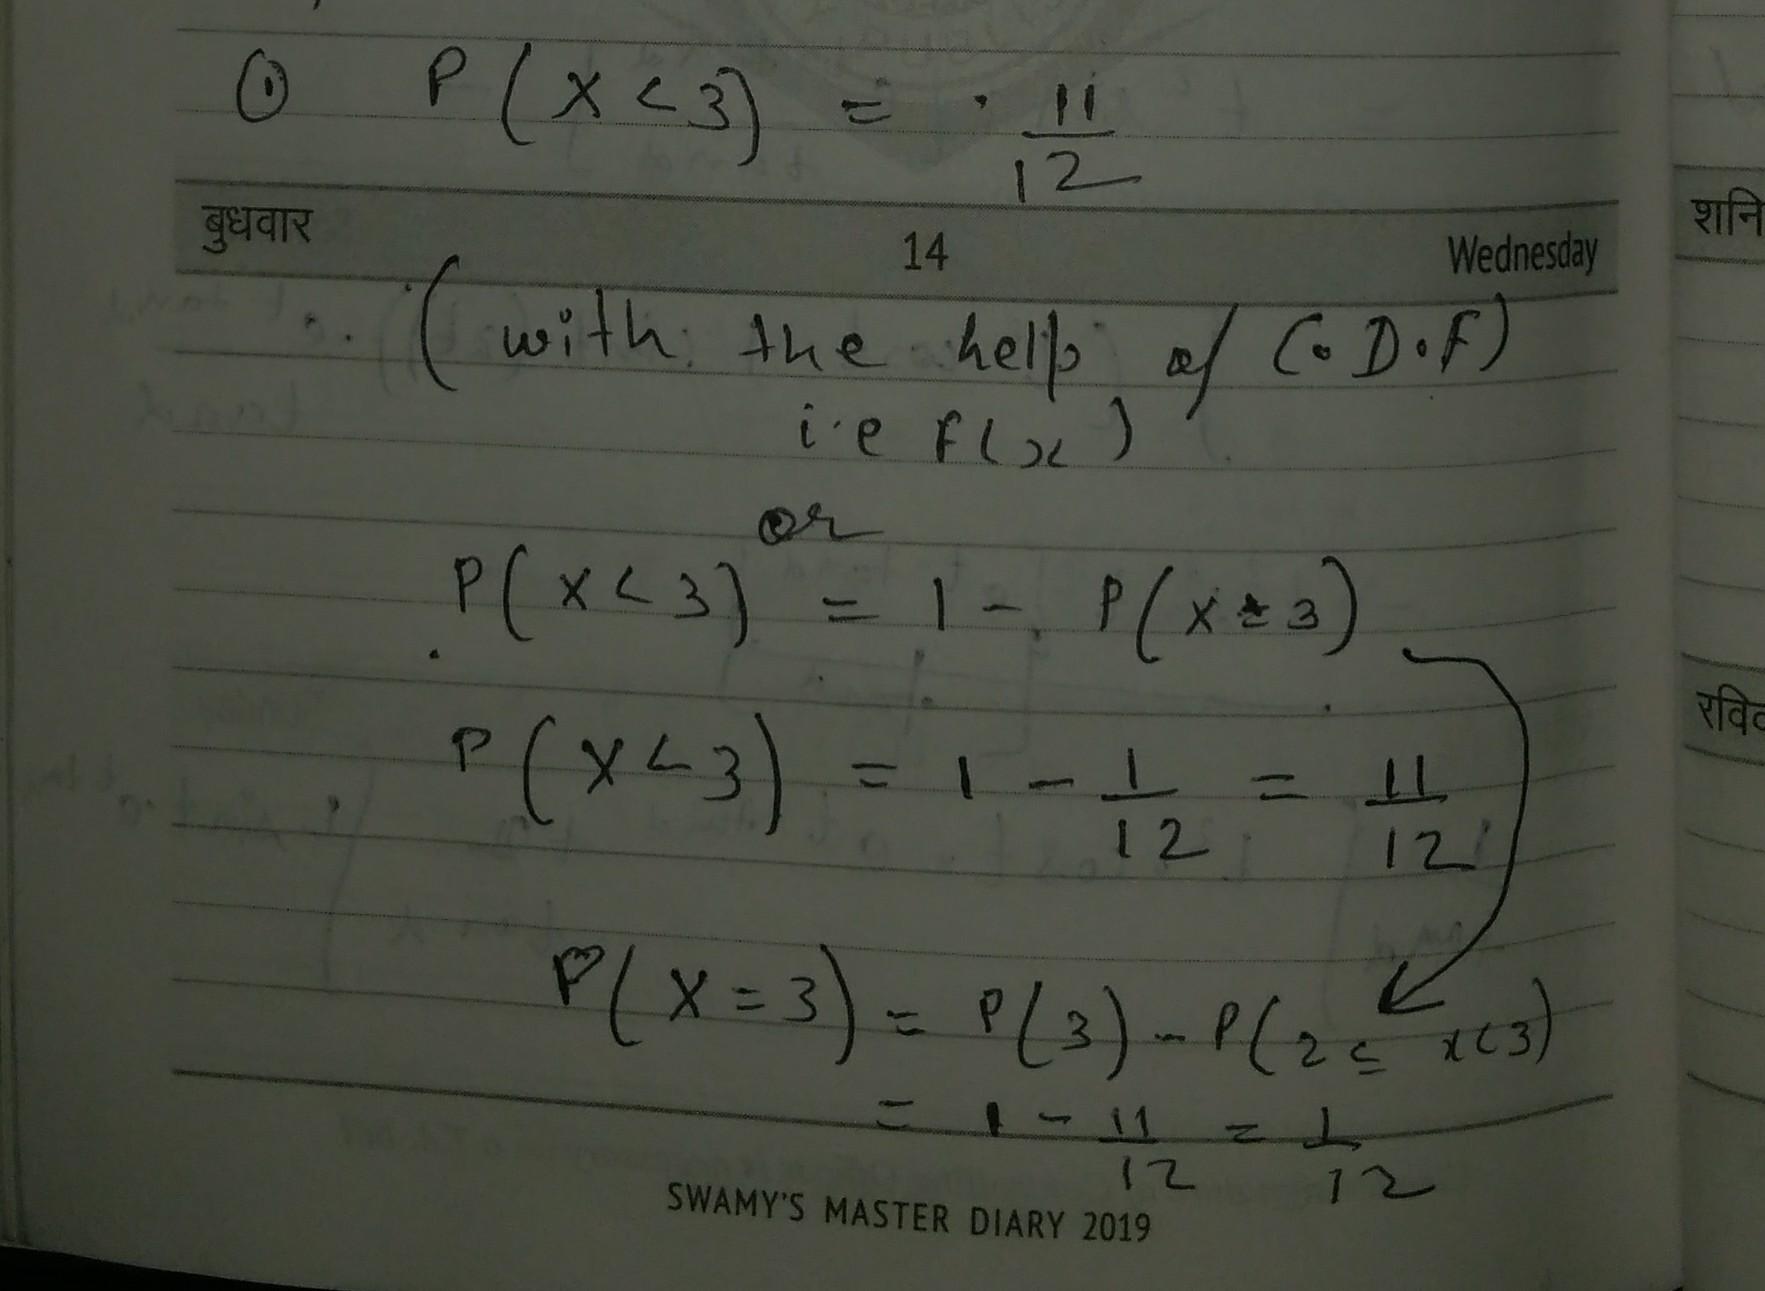 ① P(X<3) = 11/12
बुधवार 14 Wednesday शनि
(with the help of C.D.F)
i.e F(x)
or
P(X<3) = 1 - P(X≥3)
रवि
P(X<3) = 1 - 1/12 = 11/12
P(X=3) = P(3) - P(2≤x<3)
= 1 - 11/12 = 1/12
SWAMY'S MASTER DIARY 2019